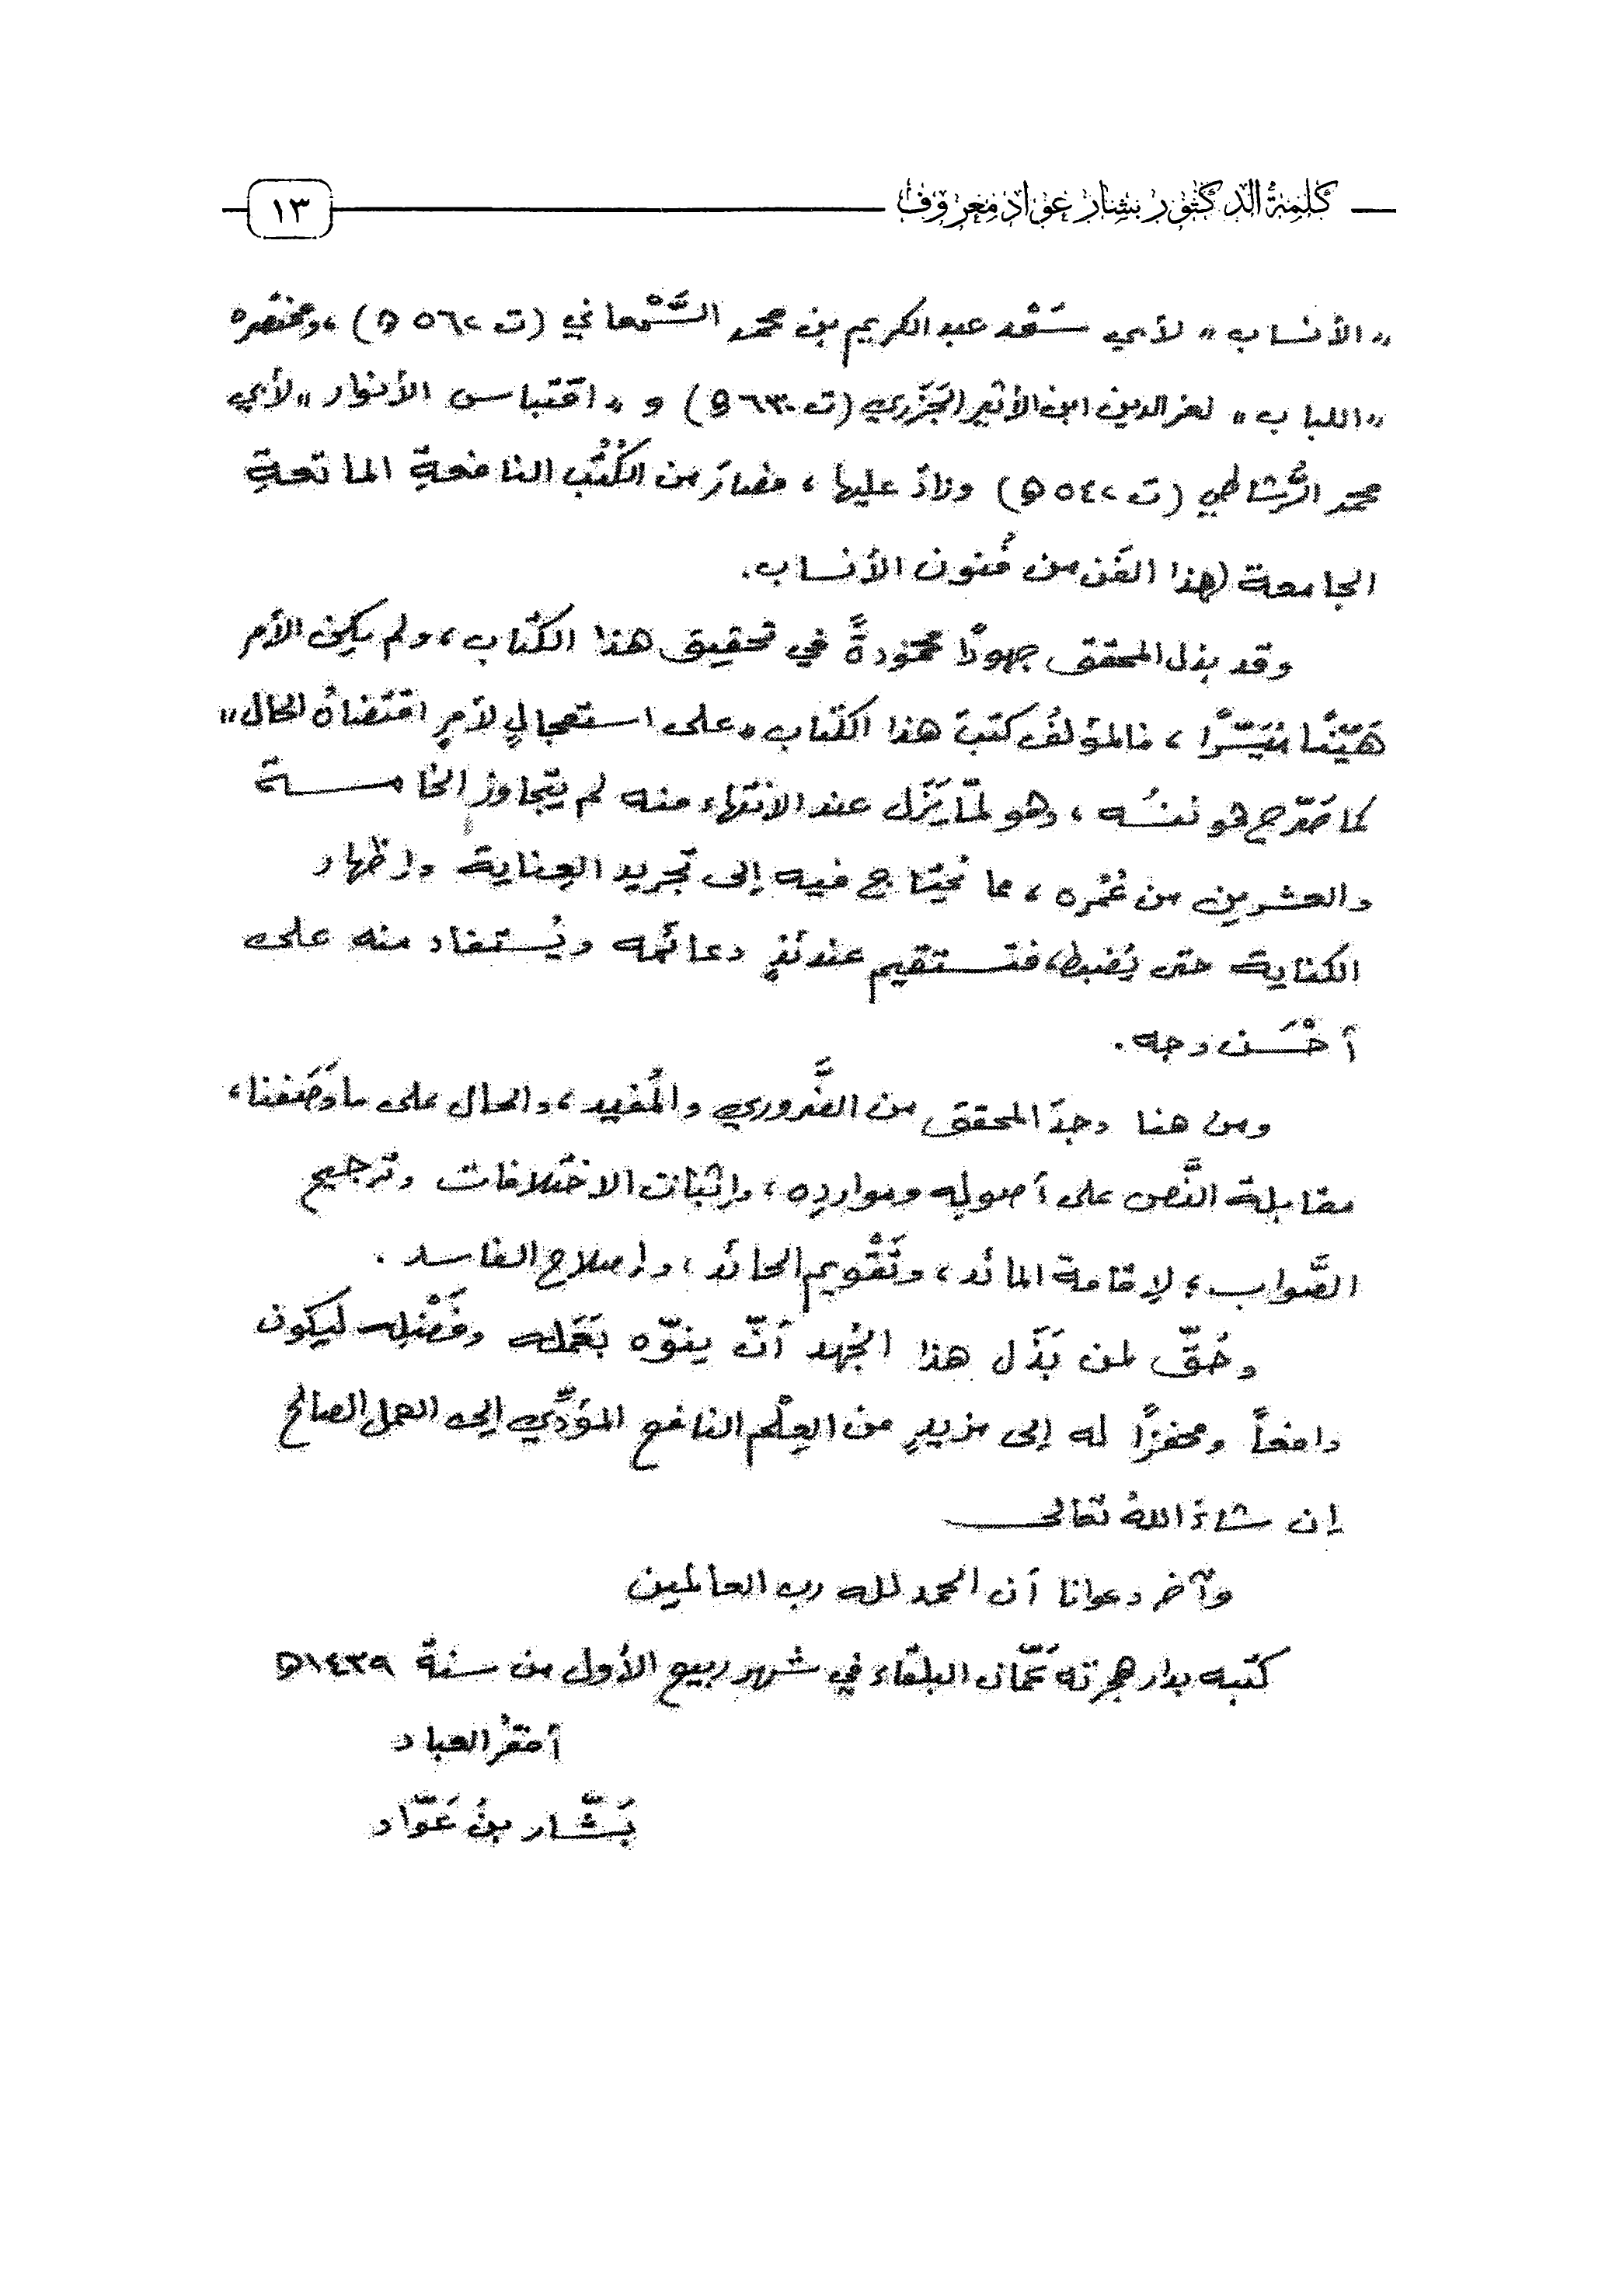 كلمة الدكتور بشار عواد معروف
١٣
«الأنساب» لأبي سَعْد عبد الكريم بن محمد السَّمْعاني (ت ٥٦٢ هـ)، ومختصره
«اللباب» لعز الدين ابن الأثير الجَزَري (ت ٦٣٠ هـ) و «اقتباس الأنوار» لأبي
محمد الرُّشاطي (ت ٥٤٢ هـ) وزادَ عليها، فصارَ من الكُتُب النافعةِ الماتعةِ
الجامعة لهذا الفَن من فُنون الأنساب.
وقد بذل المحقق جهودًا محمودةً في تحقيق هذا الكتاب، ولم يكن الأمر
هَيّنًا مُيَسّرًا، فالمؤلفُ كتبَ هذا الكتاب «على استعجالٍ لأمرٍ اقتضاهُ الحال»
كما صَرّح هو نفسُه، وهو لمّا يَزَل عند الانتهاء منه لم يتجاوز الخامسة
والعشرين من عُمُره، مما يُحتاج فيه إلى تجريد العِناية وإظهار
الكفاية حتى يُضبط، فتستقيم عندئذٍ دعائمه ويُستفاد منه على
أحْسَن وجه.
ومن هنا وجدَ المحقق من الضَّروري والمُفيد، والحال على ما وَصَفنا،
مقابلة النَّص على أصولِه ومواردِه، وإثبات الاختلافات وترجيح
الصَّواب؛ لإقامة المائد، وتَقْويم الحائد، وإصلاح الفاسد.
وحُقّ لمن بَذَل هذا الجُهد أنّ ينوّه بعَمَله وفَضْلِه ليكون
دافعاً ومحفزًا له إلى مزيدٍ من العِلْم النافع المؤدِّي إلى العمل الصالح
إن شاءَ اللهُ تعَالى
وآخر دعوانا أن الحمد لله رب العالمين
كتبه بدار هجرته عَمّان البلقاء في شهر ربيع الأول من سنة ١٤٣٩هـ
أفقرُ العباد
بَشّار بنُ عَوّاد